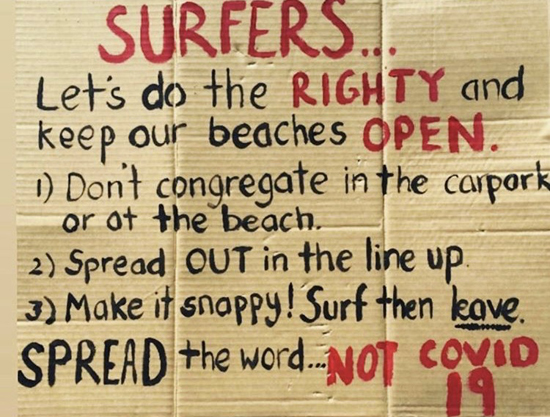 SURFERS...
Let's do the RIGHTY and
keep our beaches OPEN.
1) Don't congregate in the carpark
or at the beach.
2) Spread OUT in the line up.
3) Make it snappy! Surf then leave.
SPREAD the word...NOT COVID
19